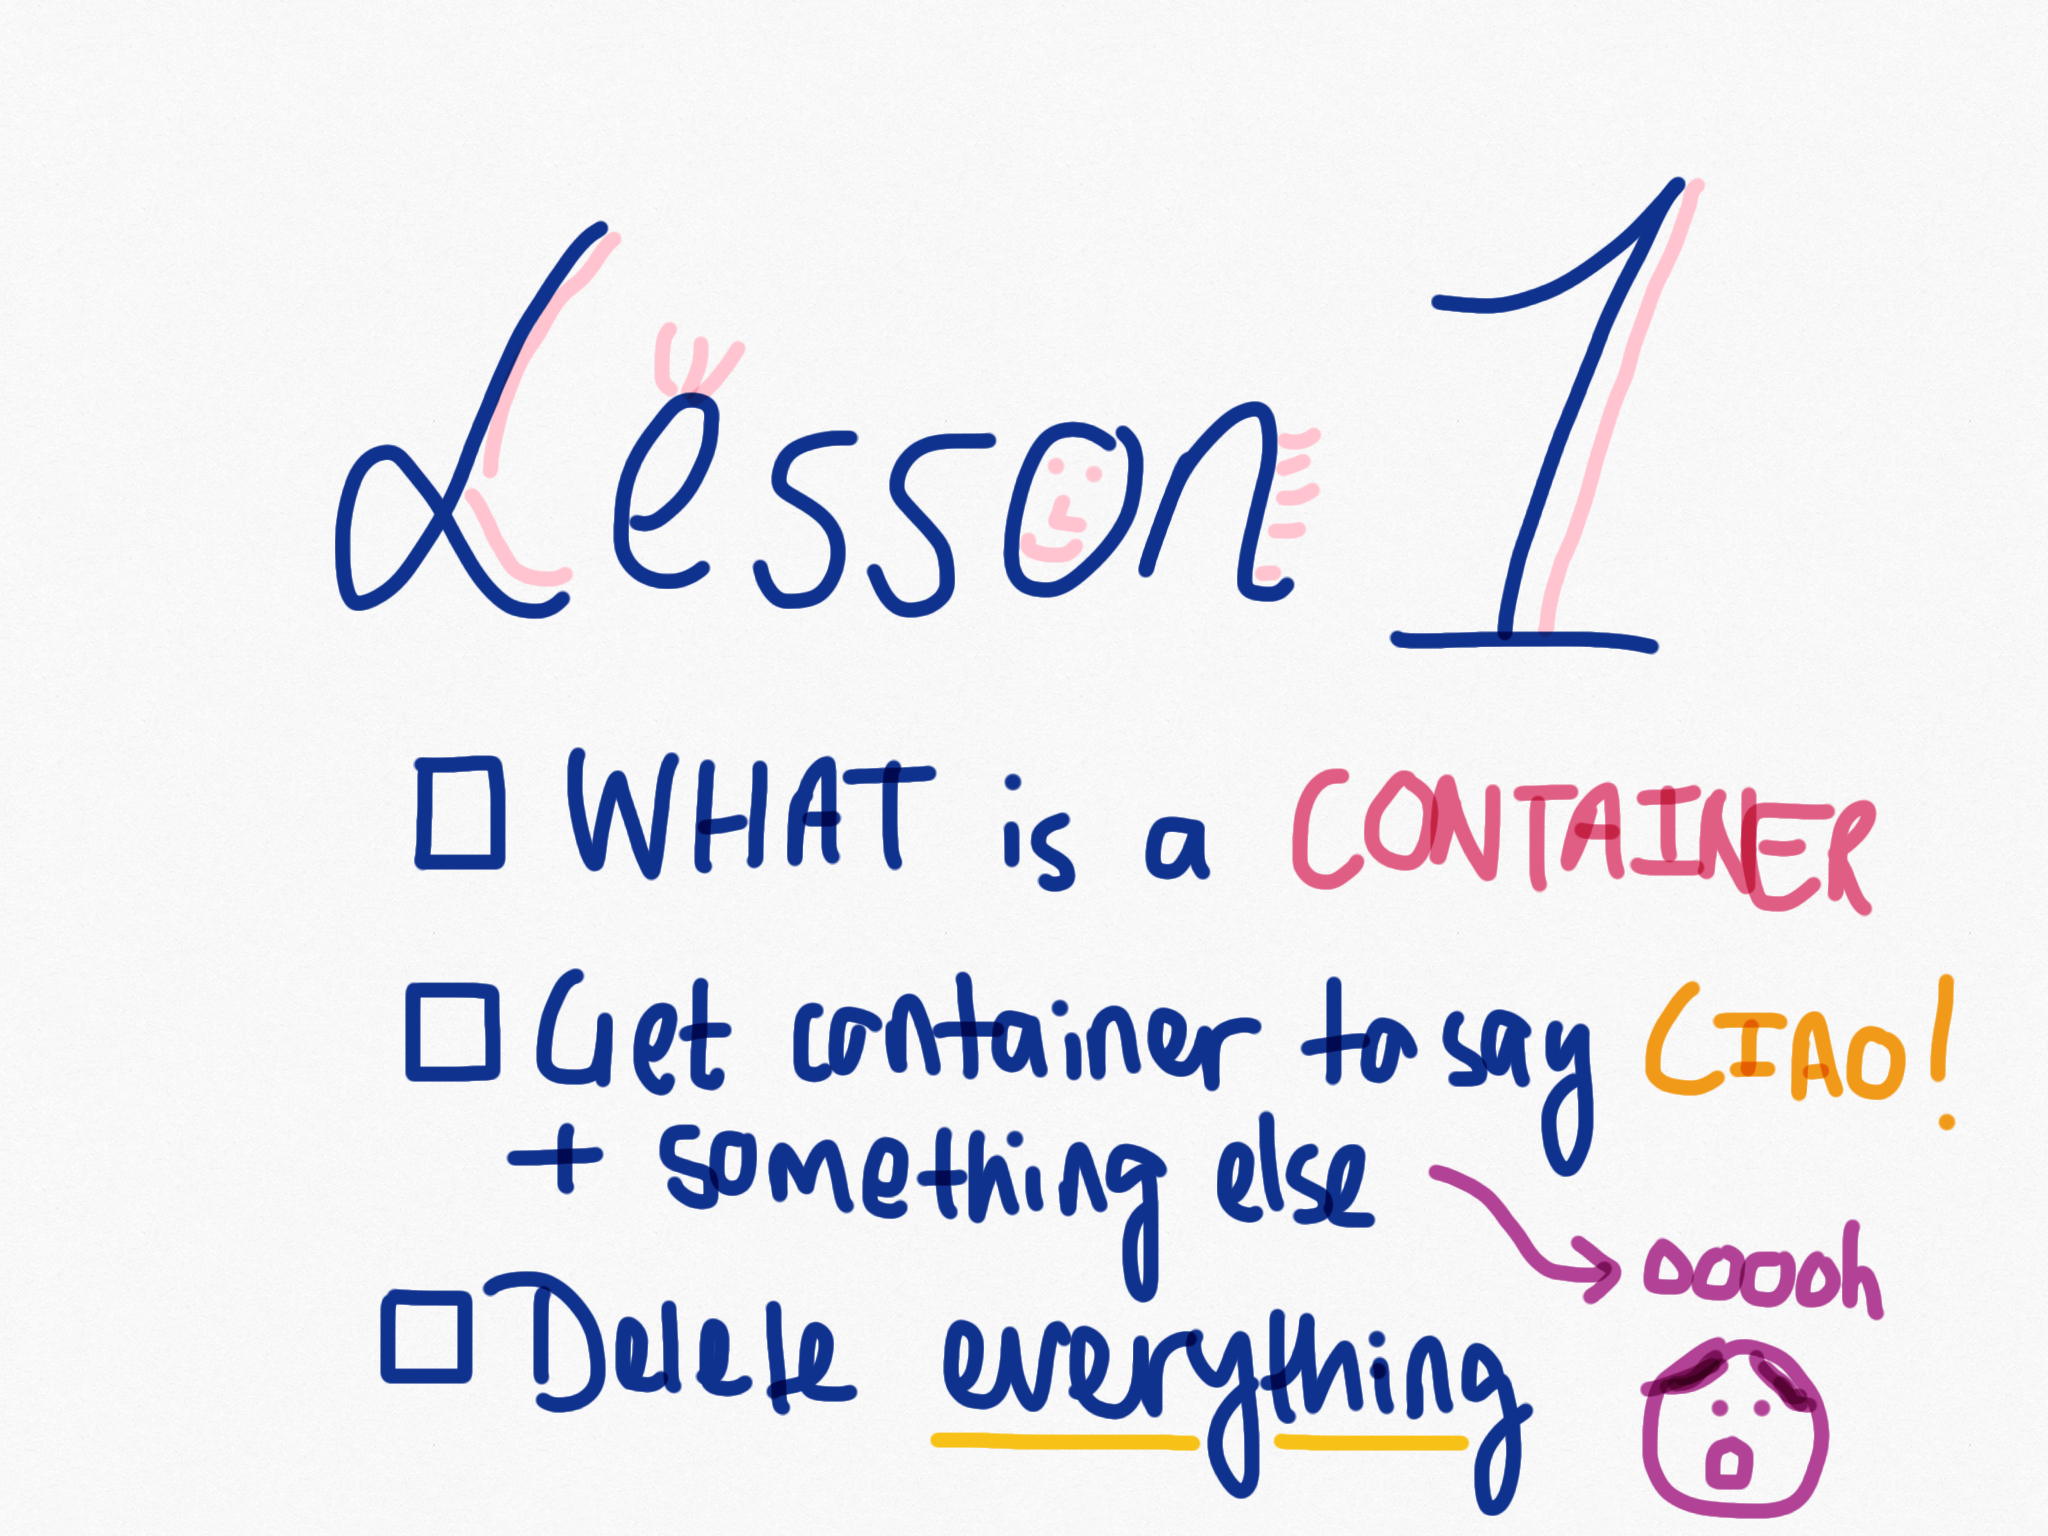 Lesson 1
WHAT is a CONTAINER
Get container to say CIAO!
+ something else
ooooh
Delete everything